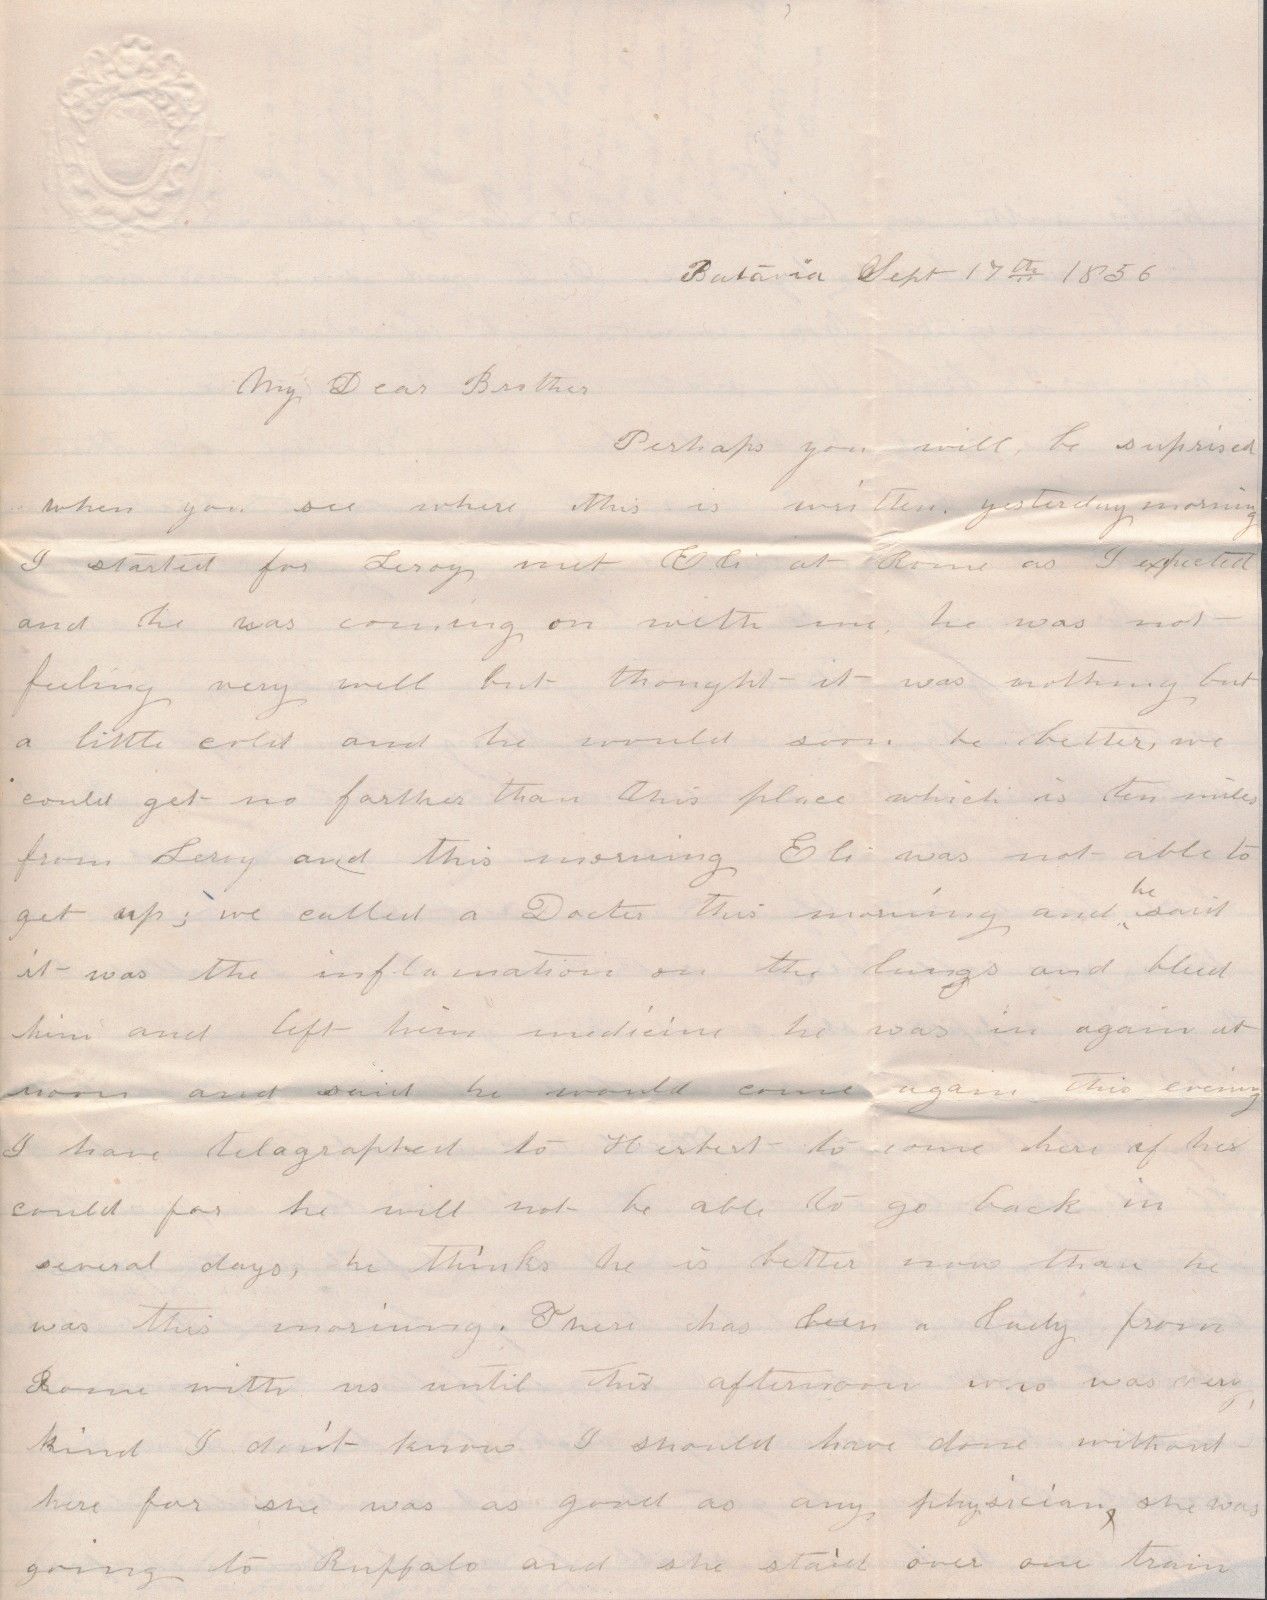 Batavia Sept 17th 1856
My Dear Brother
Perhaps you will be suprised
when you see where this is written. yesterday morning
I started for Leroy met Eli at Rome as I expected
and he was coming on with me, he was not
feeling very well but thought it was nothing but
a little cold and he would soon be better, we
could get no farther than this place which is ten miles
from Leroy and this morning Eli was not able to
get up; we called a Docter this morning and he said
it was the inflamation on the lungs and bleed
him and left him medicine he was in again at
noon and said he would come again this evening
I have telagraphed to Herbert to come here if he
could for he will not be able to go back in
several days, he thinks he is better now than he
was this morinng. There has been a lady from
Rome with us until this afternoon who was very
kind I don't know I should have done without
here for she was as good as any physician, she was
going to Buffalo and she staid over one train